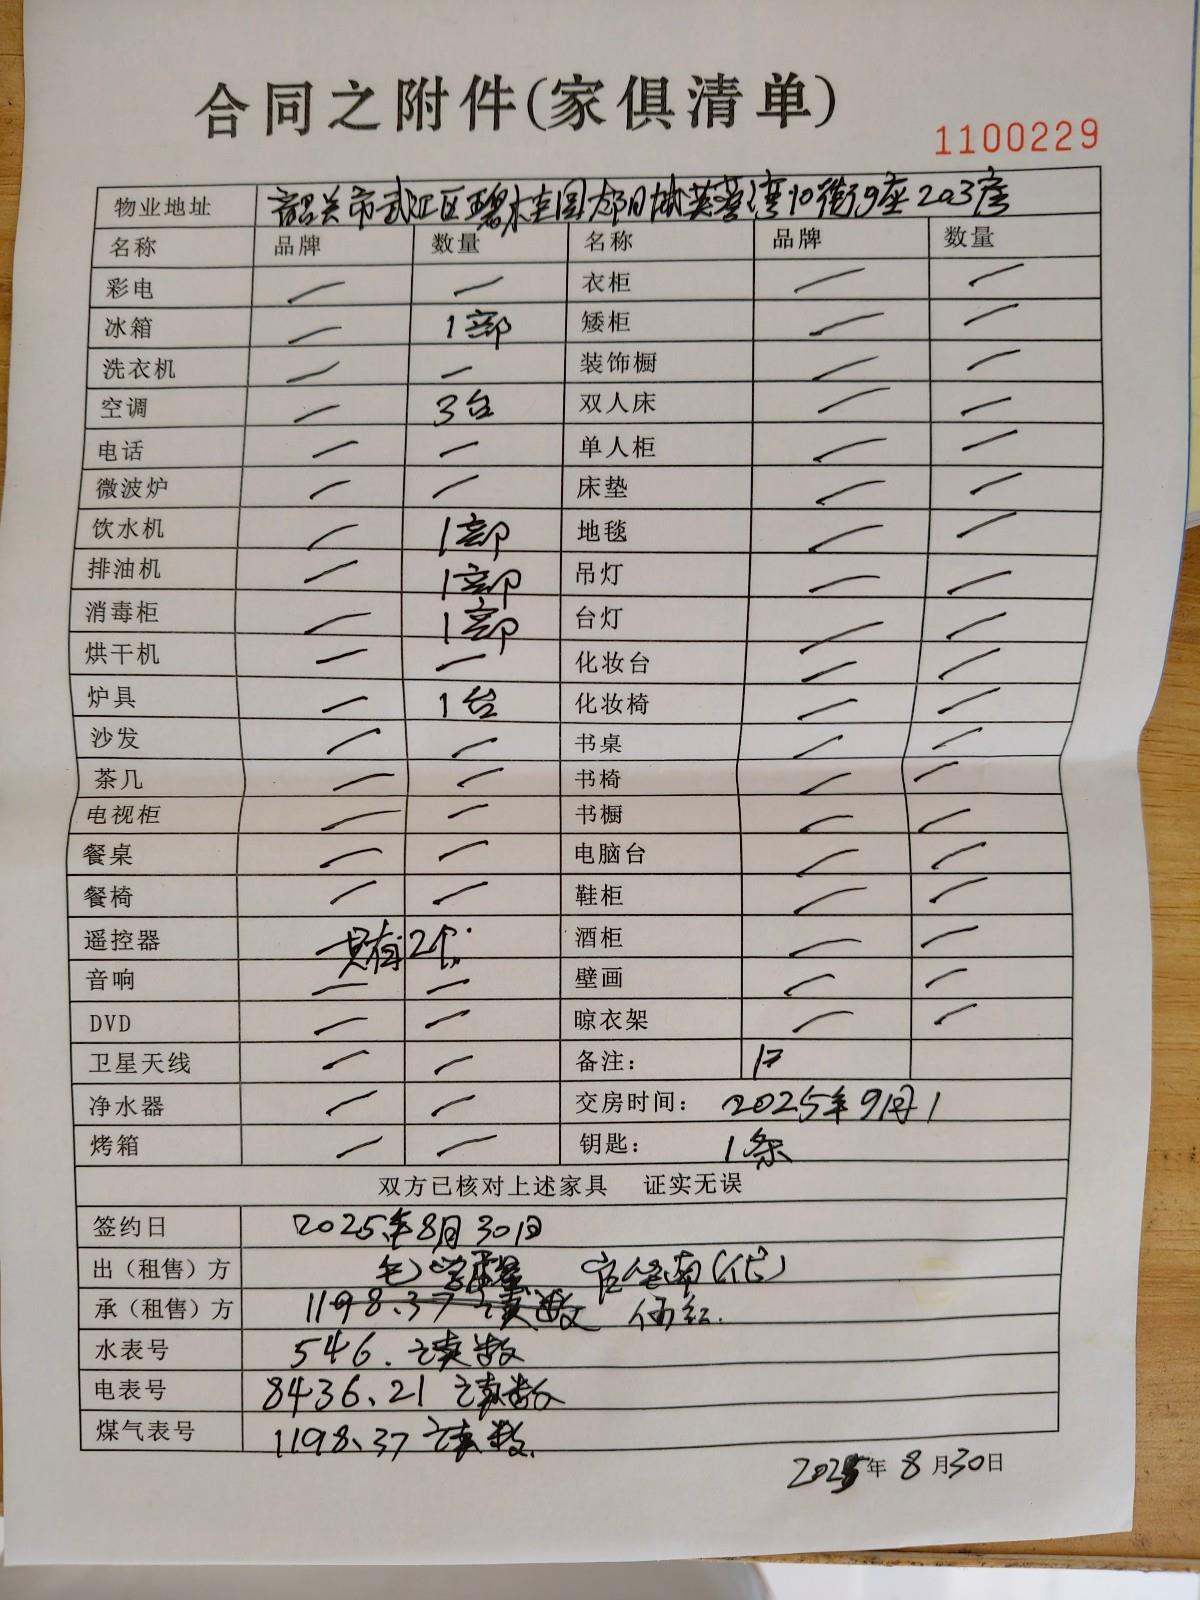 合同之附件(家俱清单)
1100229
物业地址 韶关市武江区碧桂园太阳城芙蓉湾10街9座203房
名称 品牌 数量 名称 品牌 数量
彩电 — — 衣柜 — —
冰箱 — 1部 矮柜 — —
洗衣机 — — 装饰橱 — —
空调 — 3台 双人床 — —
电话 — — 单人柜 — —
微波炉 — — 床垫 — —
饮水机 — 1部 地毯 — —
排油机 — 1部 吊灯 — —
消毒柜 — 1部 台灯 — —
烘干机 — — 化妆台 — —
炉具 — 1台 化妆椅 — —
沙发 — — 书桌 — —
茶几 — — 书椅 — —
电视柜 — — 书橱 — —
餐桌 — — 电脑台 — —
餐椅 — — 鞋柜 — —
遥控器 — 只有2个. 酒柜 — —
音响 — — 壁画 — —
DVD — — 晾衣架 — —
卫星天线 — — 备注:
净水器 — — 交房时间: 2025年9月1
烤箱 — — 钥匙: 1条
双方已核对上述家具 证实无误
签约日 2025年8月30日
出（租售）方 (代)
承（租售）方 1198.37 读数 伍红.
水表号 546. 读数
电表号 8436.21 读数
煤气表号 1198.37 读数.
2025年 8月30日